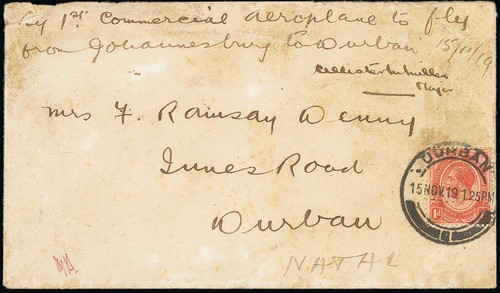 by 1st Commercial Aeroplane to fly
from Johannesburg to Durban 15/11/19
Allister M Miller
Major
Mrs F. Ramsay Denny
Innes Road
Durban
NATAL
DURBAN
15 NOV 19 1 25 PM
1
1D